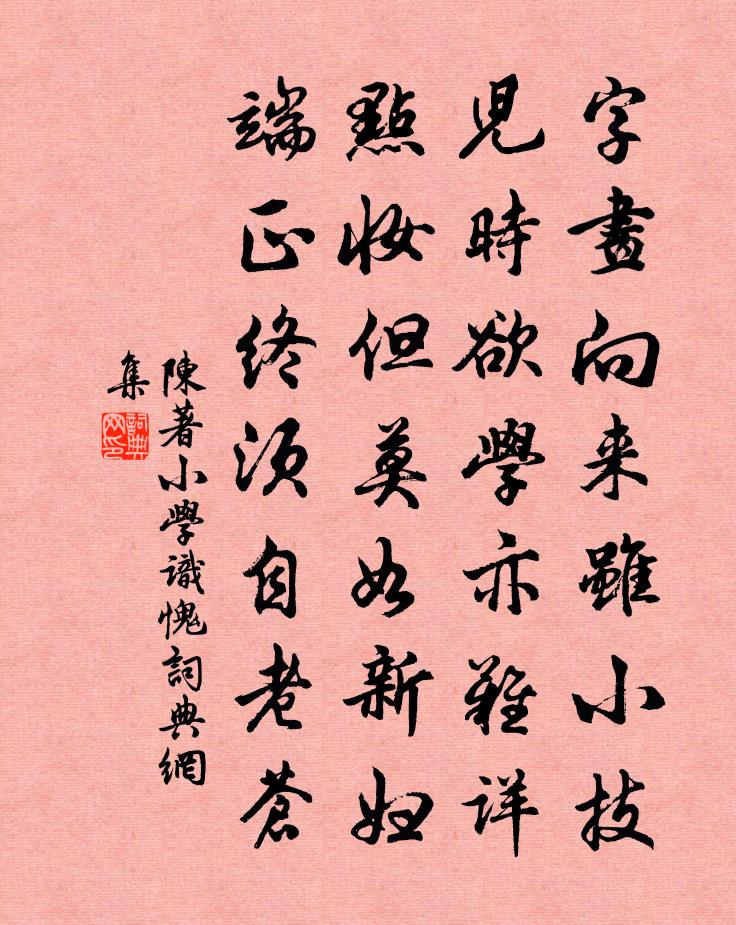 字畫向来雖小技
兒時欲學亦難詳
點妝但莫如新婦
端正終須自老蒼
陳著小學識愧詞典網
集
詞典
网印